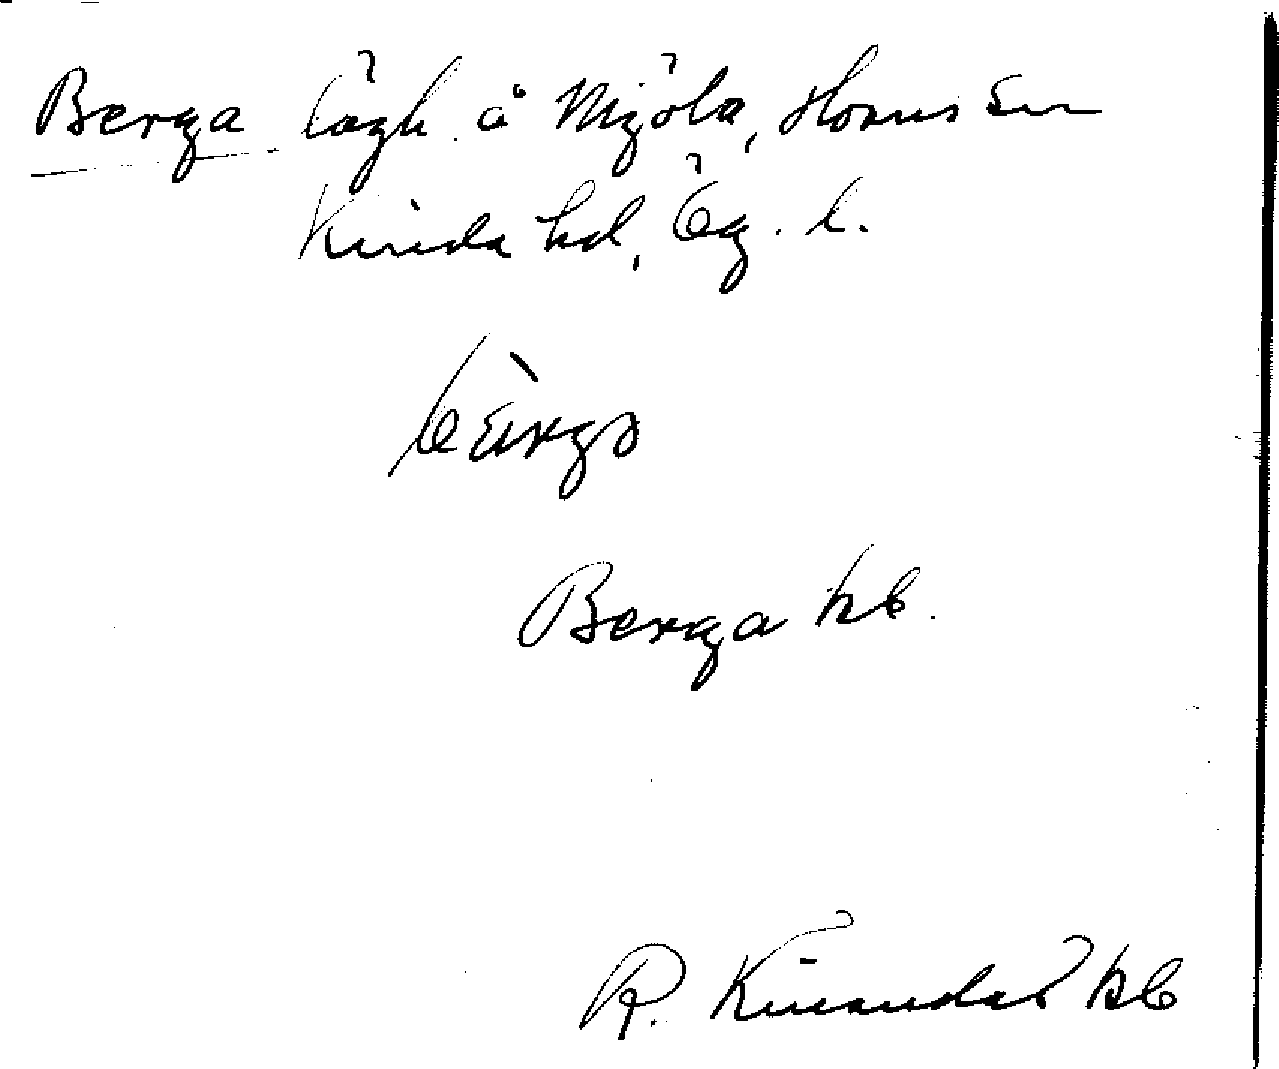 Berga lägh. å Mjöla, Horns sn
Kinda hd, Ög. l.
bärga
Berga kb.
R. kb